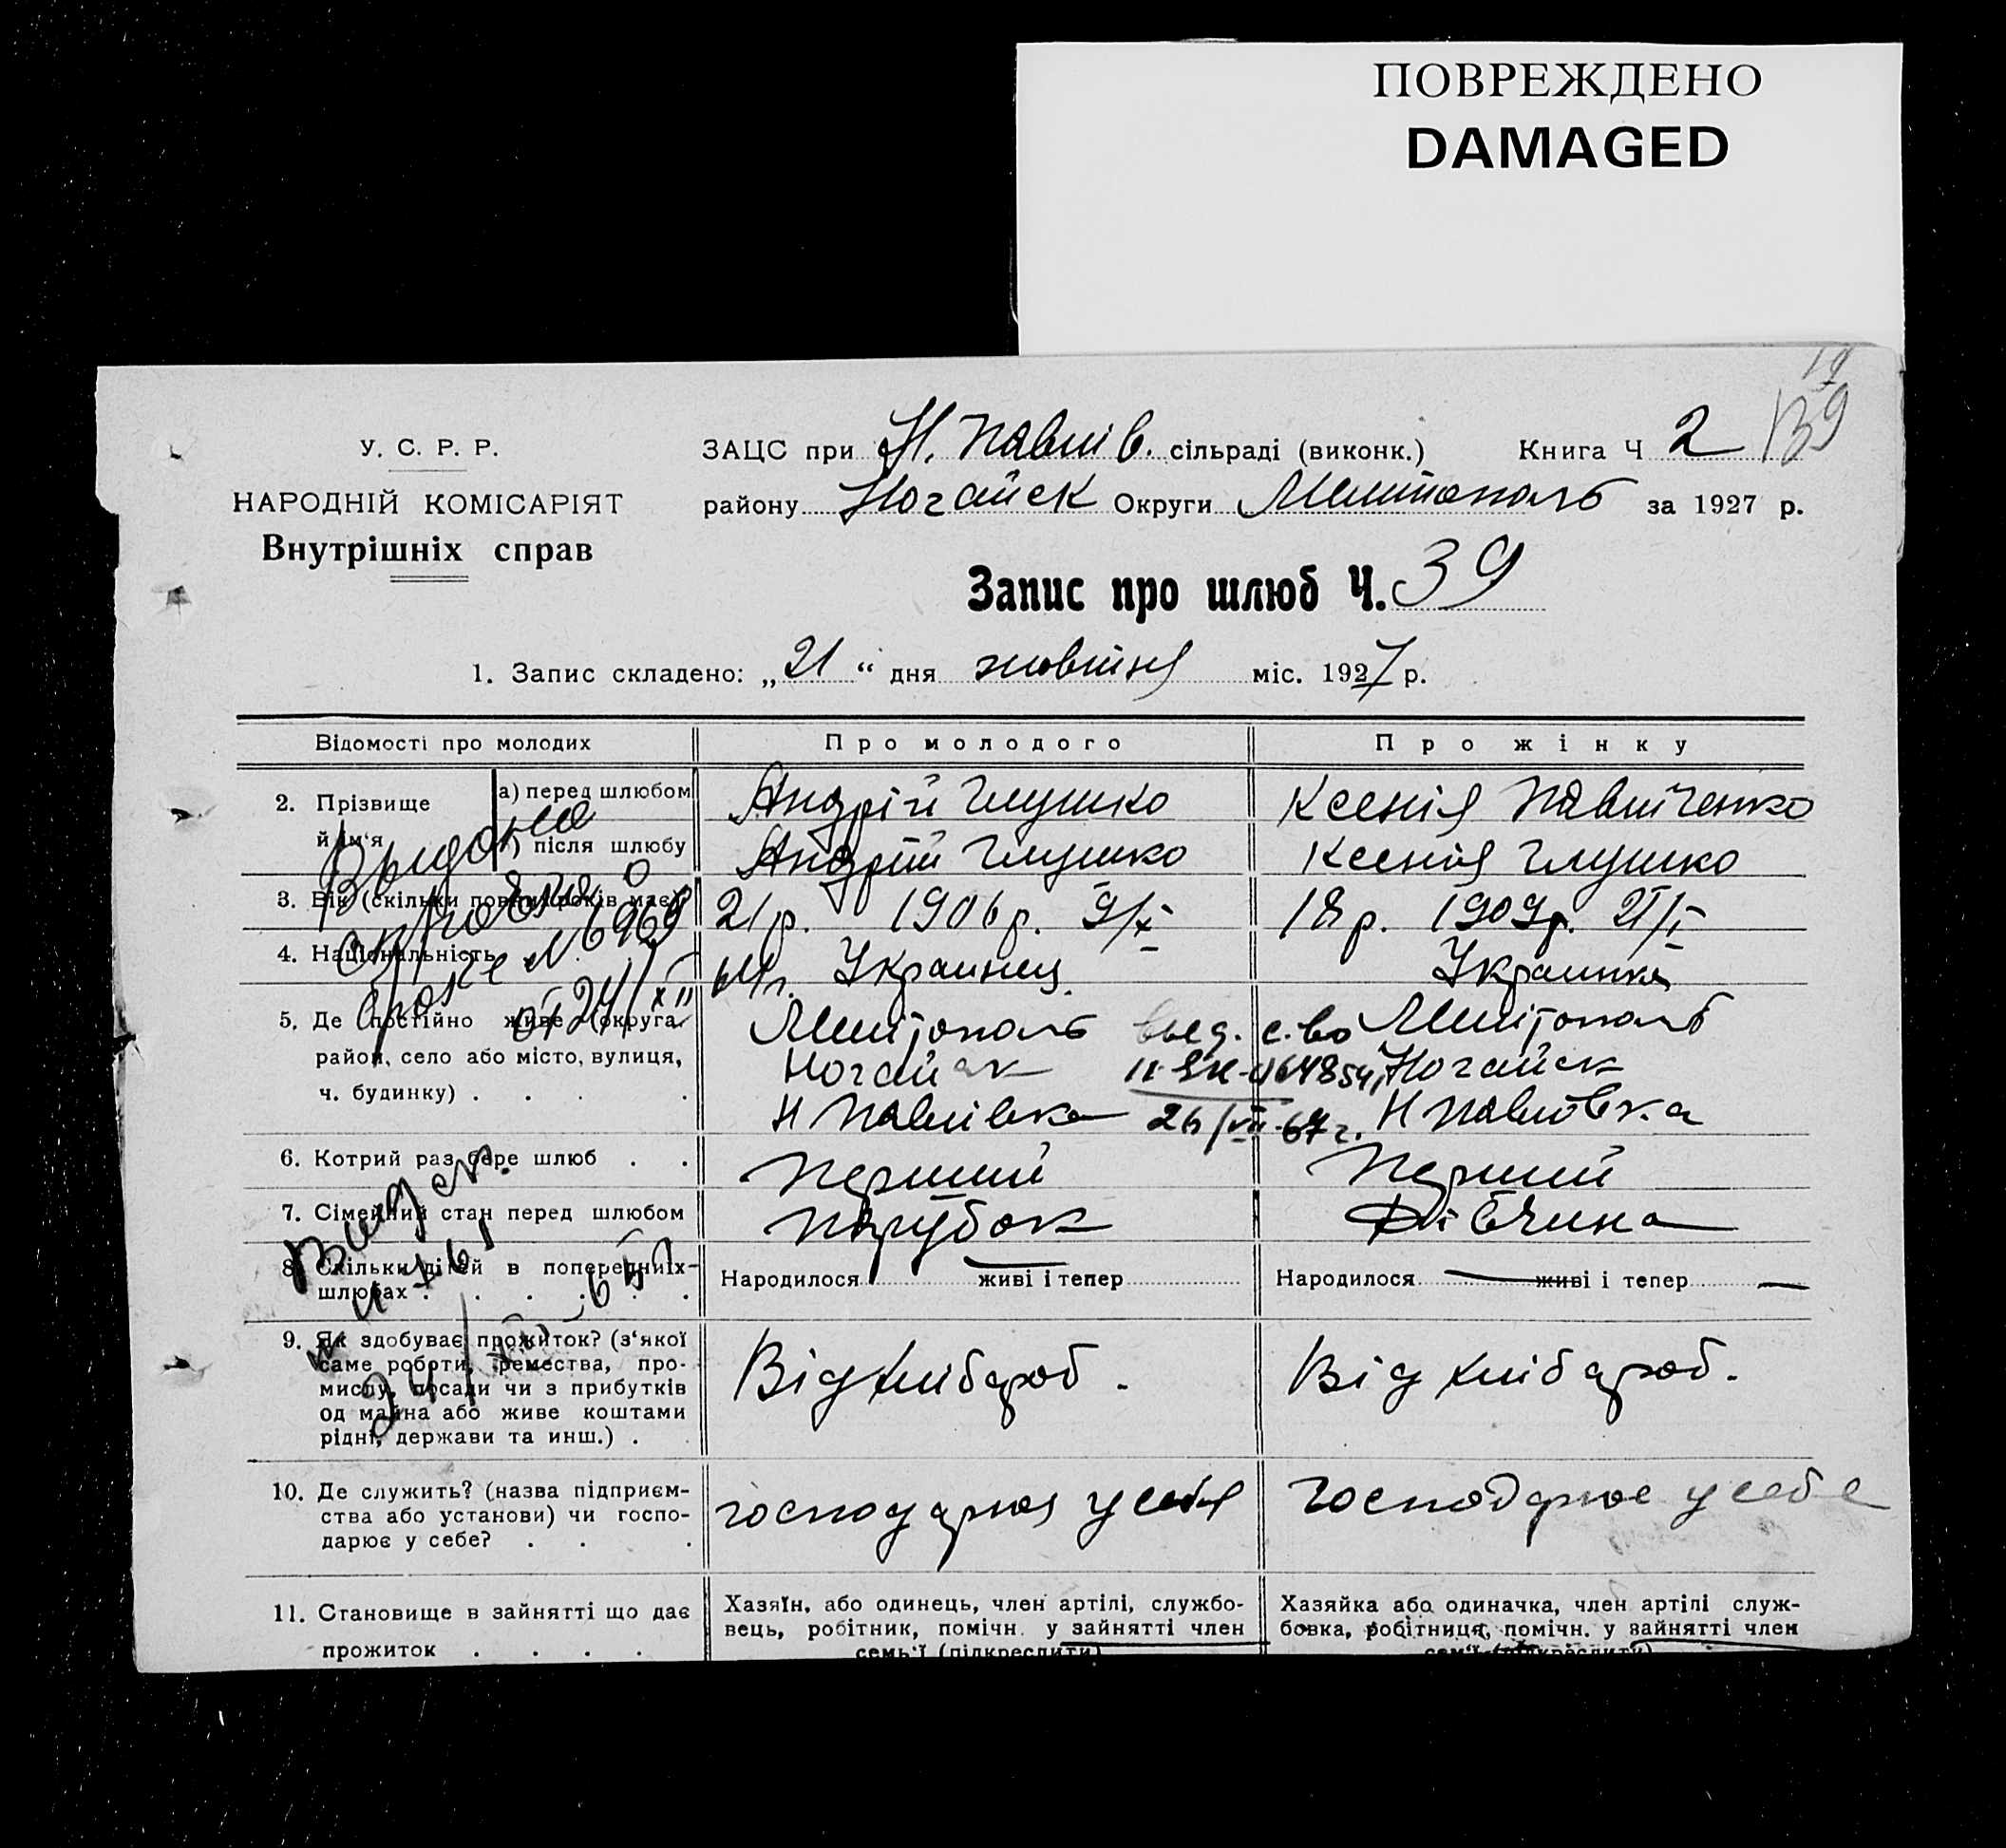 ПОВРЕЖДЕНО
DAMAGED
19
139
У. С. Р. Р.
НАРОДНІЙ КОМІСАРІЯТ
Внутрішніх справ
ЗАЦС при Н. Павлів. сільраді (виконк.) Книга Ч 2
району Ногайськ Округи Мелітополь за 1927 р.
Запис про шлюб Ч. 39
1. Запис складено: „21“ дня жовтня міс. 1927 р.
Відомості про молодих Про молодого Про жінку
2. Прізвище й ім'я а) перед шлюбом Андрій Глушко Ксенія Павліченко
) після шлюбу Андрій Глушко Ксенія Глушко
3. Вік (скільки повних років має) 21 р. 1906 р. 9/X 18 р. 1909 р. 21/I
4. Національність Украинец Украинка
5. Де постійно живе (округа, Мелітополь Мелітополь
район, село або місто, вулиця, Ногайск Ногайск
ч. будинку) . . . Н Павлівка Н Павловка
выд. с-во
26/VII-67 г.
6. Котрий раз бере шлюб . . Перший Перший
7. Сімейний стан перед шлюбом Парубок Дівчина
8. Скільки дітей в попередніих шлюбах . . . . . . Народилося живі і тепер Народилося живі і тепер
9. Як здобуває прожиток? (з'якої
саме роботи, ремества, про-
мислу, посади чи з прибутків
од майна або живе коштами
рідні, держави та инш.) . .
Від хлібороб. Від хлібороб.
10. Де служить? (назва підприєм-
ства або установи) чи госпо-
дарює у себе? . . .
господарює у себе господарює у себе
11. Становище в зайнятті що дає
прожиток . . . .
Хазяїн, або одинець, член артілі, службо-
вець, робітник, помічн. у зайнятті член
семь'ї (підкреслити)
Хазяйка або одиначка, член артілі служ-
бовка, робітниця, помічн. у зайнятті член
сем'ї (підкреслити)
Выдано
справка о
браке № 6969
от 24/XII